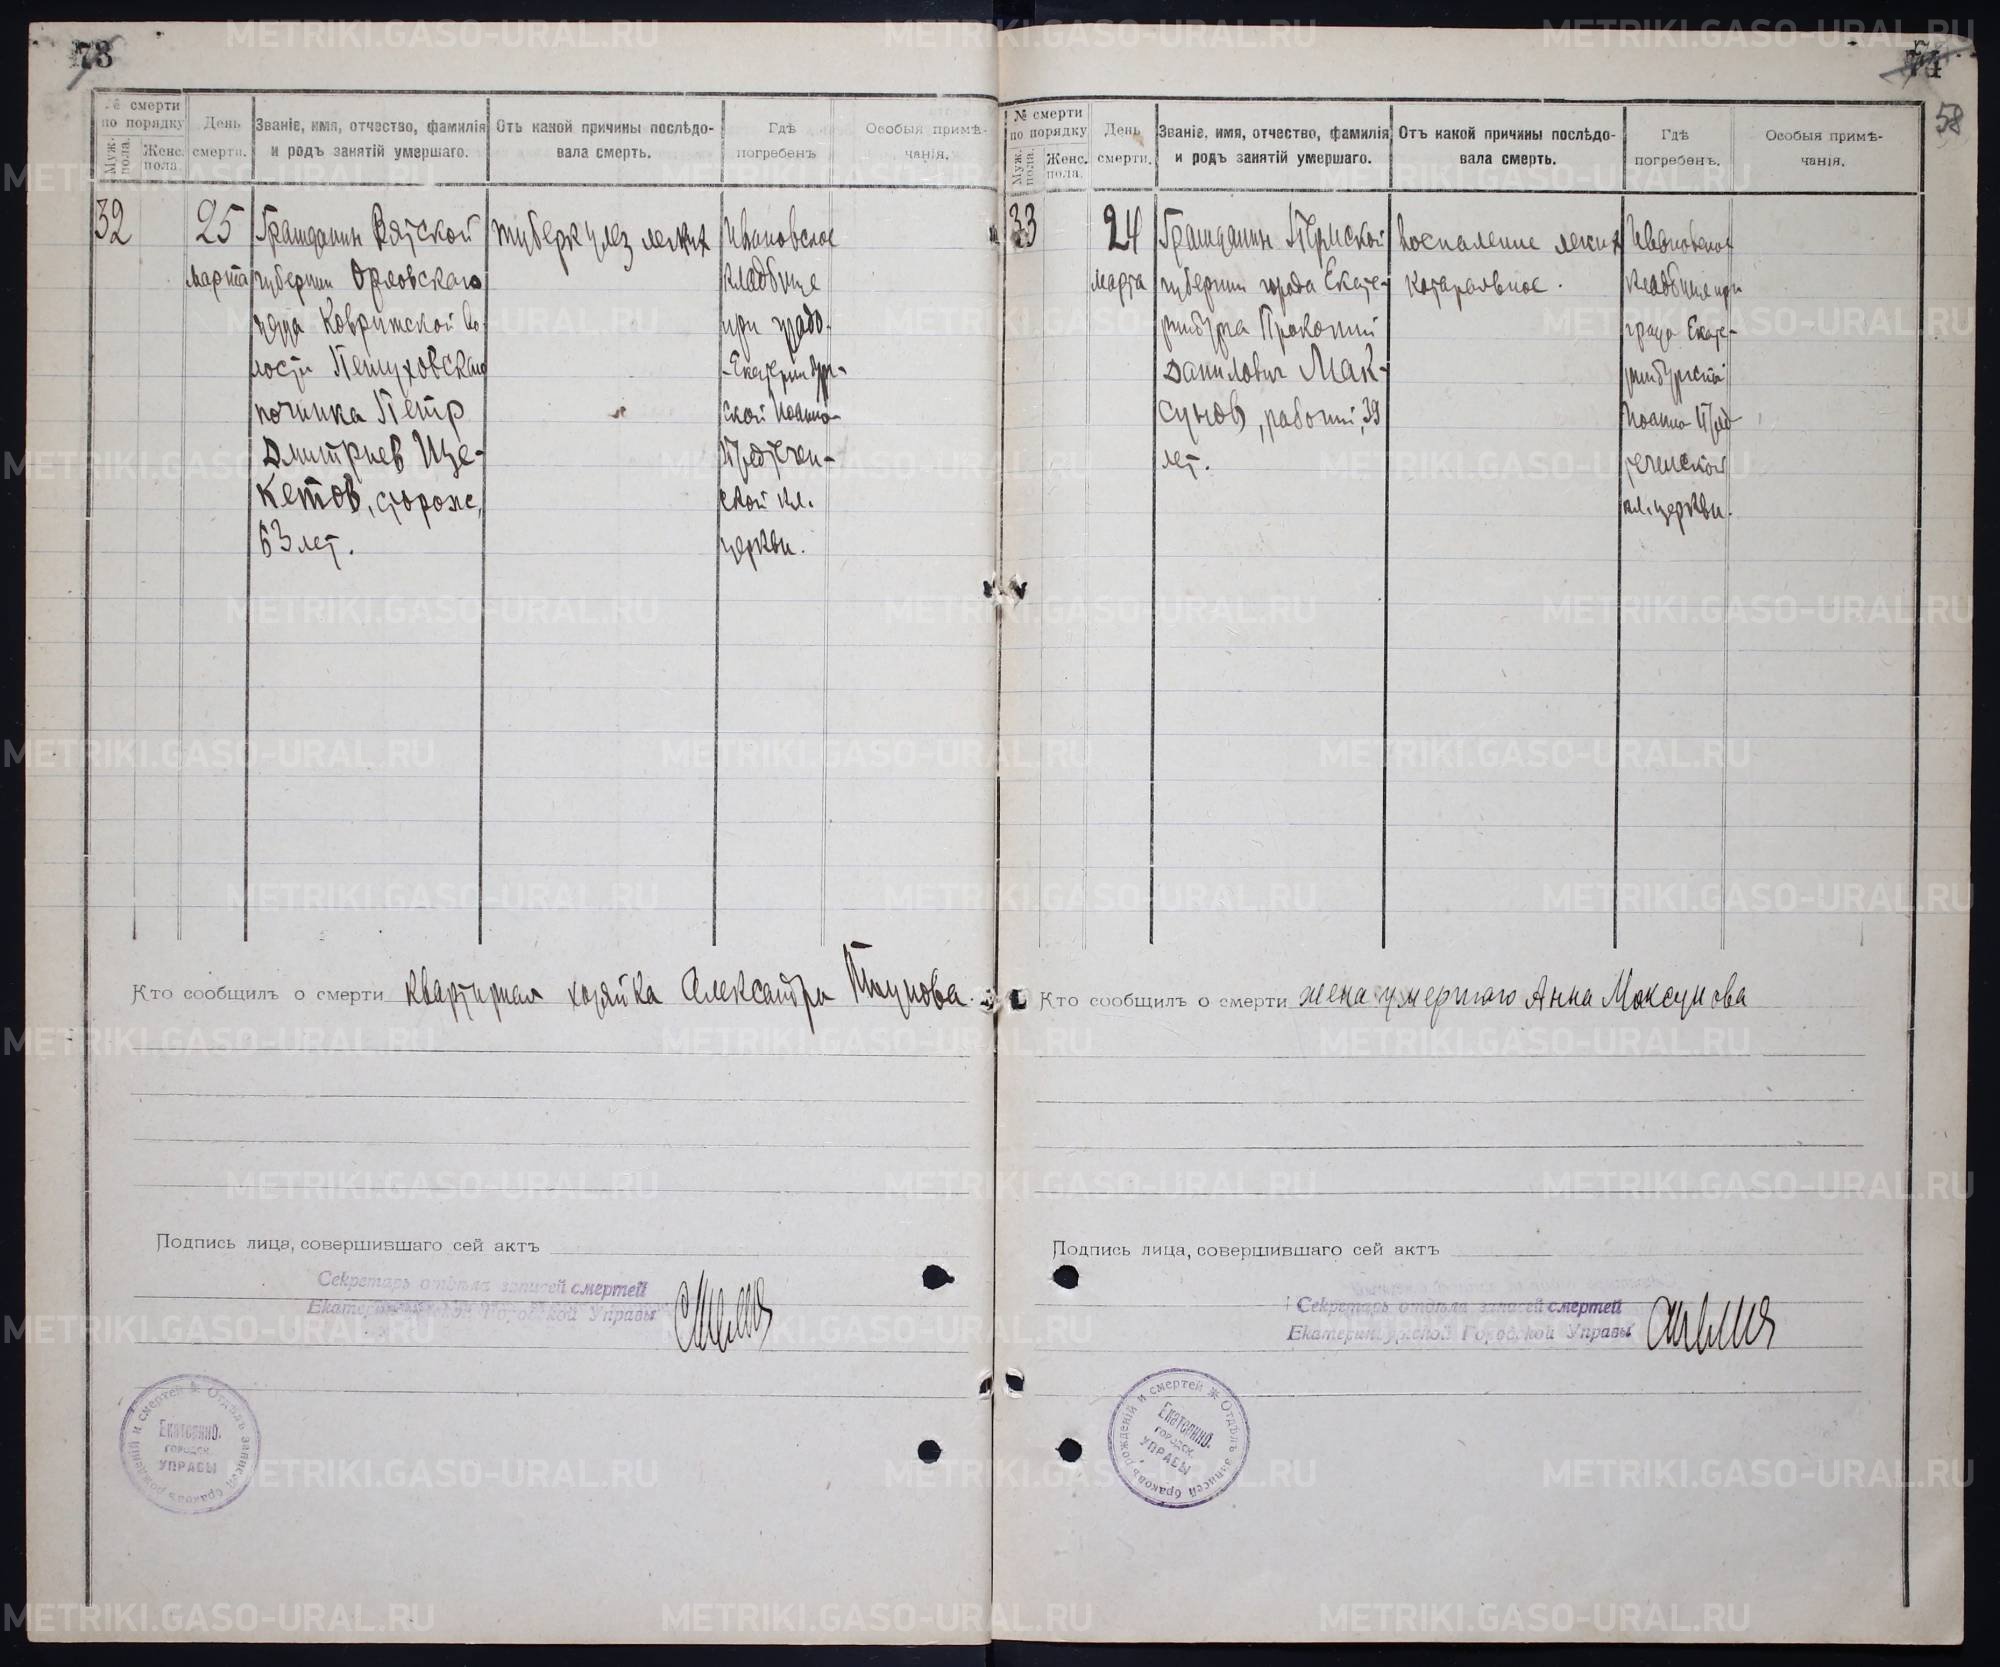 73
№ смерти по порядку
Муж. пола.
Женс. пола.
День смерти.
Званіе, имя, отчество, фамилія и родъ занятій умершаго.
Отъ какой причины послѣдовала смерть.
Гдѣ погребенъ
Особыя примѣчанія.
32
25
марта
Гражданин Вятской
губернии Орловского
уезда Ковритской во-
лости Петуховского
починка Петр
Дмитриев Ще-
кетов, сторож,
63 лет.
туберкулез легких
Ивановское
кладбище
при градо-
Екатеринбур-
ской Иоанно-
Предтечен-
ской кл.
церкви.
Кто сообщилъ о смерти квартирная хозяйка Александра
Подпись лица, совершившаго сей актъ
Секретарь отдѣла записей смертей
Екатеринбургской Городской Управы
Отдѣлъ записей браковъ рожденій и смертей
Екатеринб.
городск.
УПРАВЫ
74
58
№ смерти по порядку
Муж. пола.
Женс. пола.
День смерти.
Званіе, имя, отчество, фамилія и родъ занятій умершаго.
Отъ какой причины послѣдовала смерть.
Гдѣ погребенъ.
Особыя примѣчанія.
33
24
марта
Гражданин Пермской
губернии города Екате-
ринбурга Прокопий
Данилович Мак-
сунов, рабочий, 39
лет.
Воспаление легких
катаральное.
Ивановское
кладбище при
градо Екате-
ринбургской
Иоанно Пред-
теченской
кл. церкви.
Кто сообщилъ о смерти жена умершего Анна Максунова
Подпись лица, совершившаго сей актъ
Секретарь отдѣла записей смертей
Екатеринбургской Городской Управы
Отдѣлъ записей браковъ рожденій и смертей
Екатеринб.
городск.
УПРАВЫ
METRIKI.GASO-URAL.RU